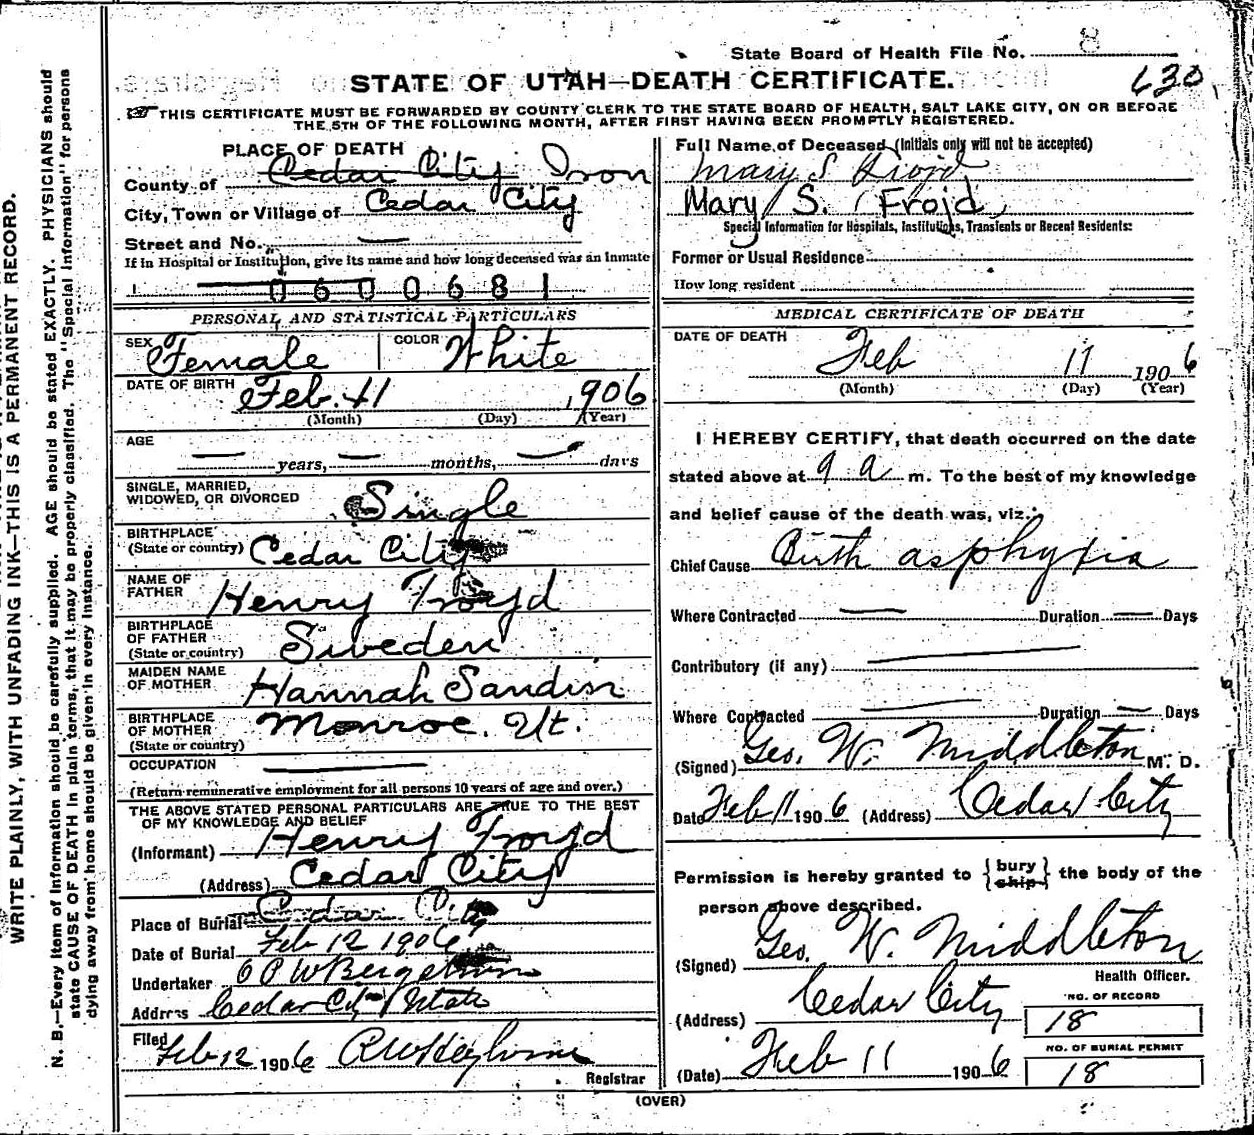 State Board of Health File No. 8
STATE OF UTAH—DEATH CERTIFICATE.
630
THIS CERTIFICATE MUST BE FORWARDED BY COUNTY CLERK TO THE STATE BOARD OF HEALTH, SALT LAKE CITY, ON OR BEFORE
THE 5TH OF THE FOLLOWING MONTH, AFTER FIRST HAVING BEEN PROMPTLY REGISTERED.
PLACE OF DEATH
County of Cedar City Iron
City, Town or Village of Cedar City
Street and No. —
If in Hospital or Institution, give its name and how long deceased was an inmate
0600681
PERSONAL AND STATISTICAL PARTICULARS
SEX Female COLOR White
DATE OF BIRTH Feb. 11 1906
(Month) (Day) (Year)
AGE
— years, — months, — days
SINGLE, MARRIED,
WIDOWED, OR DIVORCED Single
BIRTHPLACE
(State or country) Cedar City
NAME OF
FATHER Henry Froyd
BIRTHPLACE
OF FATHER
(State or country) Sweden
MAIDEN NAME
OF MOTHER Hannah Sandin
BIRTHPLACE
OF MOTHER
(State or country) Monroe. Ut.
OCCUPATION —
(Return remunerative employment for all persons 10 years of age and over.)
THE ABOVE STATED PERSONAL PARTICULARS ARE TRUE TO THE BEST
OF MY KNOWLEDGE AND BELIEF
(Informant) Henry Froyd
(Address) Cedar City
Place of Burial Cedar City
Date of Burial Feb 12 1906
Undertaker
Address Cedar City Utah
Filed Feb 12 1906
Registrar
Full Name of Deceased (Initials only will not be accepted)
Mary S Frojd
Mary S. Frojd
Special Information for Hospitals, Institutions, Transients or Recent Residents:
Former or Usual Residence
How long resident
MEDICAL CERTIFICATE OF DEATH
DATE OF DEATH
Feb 11 1906
(Month) (Day) (Year)
I HEREBY CERTIFY, that death occurred on the date
stated above at 9 a m. To the best of my knowledge
and belief cause of the death was, viz.:
Chief Cause Birth asphyxia
Where Contracted — Duration — Days
Contributory (if any) —
Where Contracted — Duration — Days
(Signed) Geo. W. Middleton M. D.
Date Feb 11 1906 (Address) Cedar City
Permission is hereby granted to {bury ship} the body of the
person above described.
(Signed) Geo. W. Middleton
Health Officer.
(Address) Cedar City
NO. OF RECORD
18
NO. OF BURIAL PERMIT
18
(Date) Feb 11 1906
(OVER)
WRITE PLAINLY, WITH UNFADING INK—THIS IS A PERMANENT RECORD.
N. B.—Every item of information should be carefully supplied. AGE should be stated EXACTLY. PHYSICIANS should
state CAUSE OF DEATH in plain terms, that it may be properly classified. The "Special Information" for persons
dying away from home should be given in every instance.